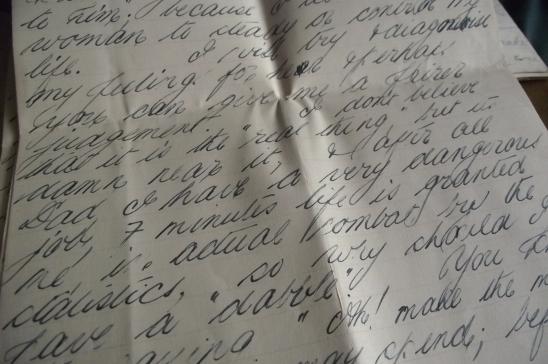 to him; because I
woman to steady & control my
life. I will try & diagonise
my feeling for her & perhaps
you can give me a fairer
judgement. I don't believe
that it is the "real thing" but its
damn near it, & after all
Dad I have a very dangerous
job, 7 minutes life is granted
me in actual combat by the
statistics, so why should I
have a "dabble" You
"Oh! make the
spend; bef